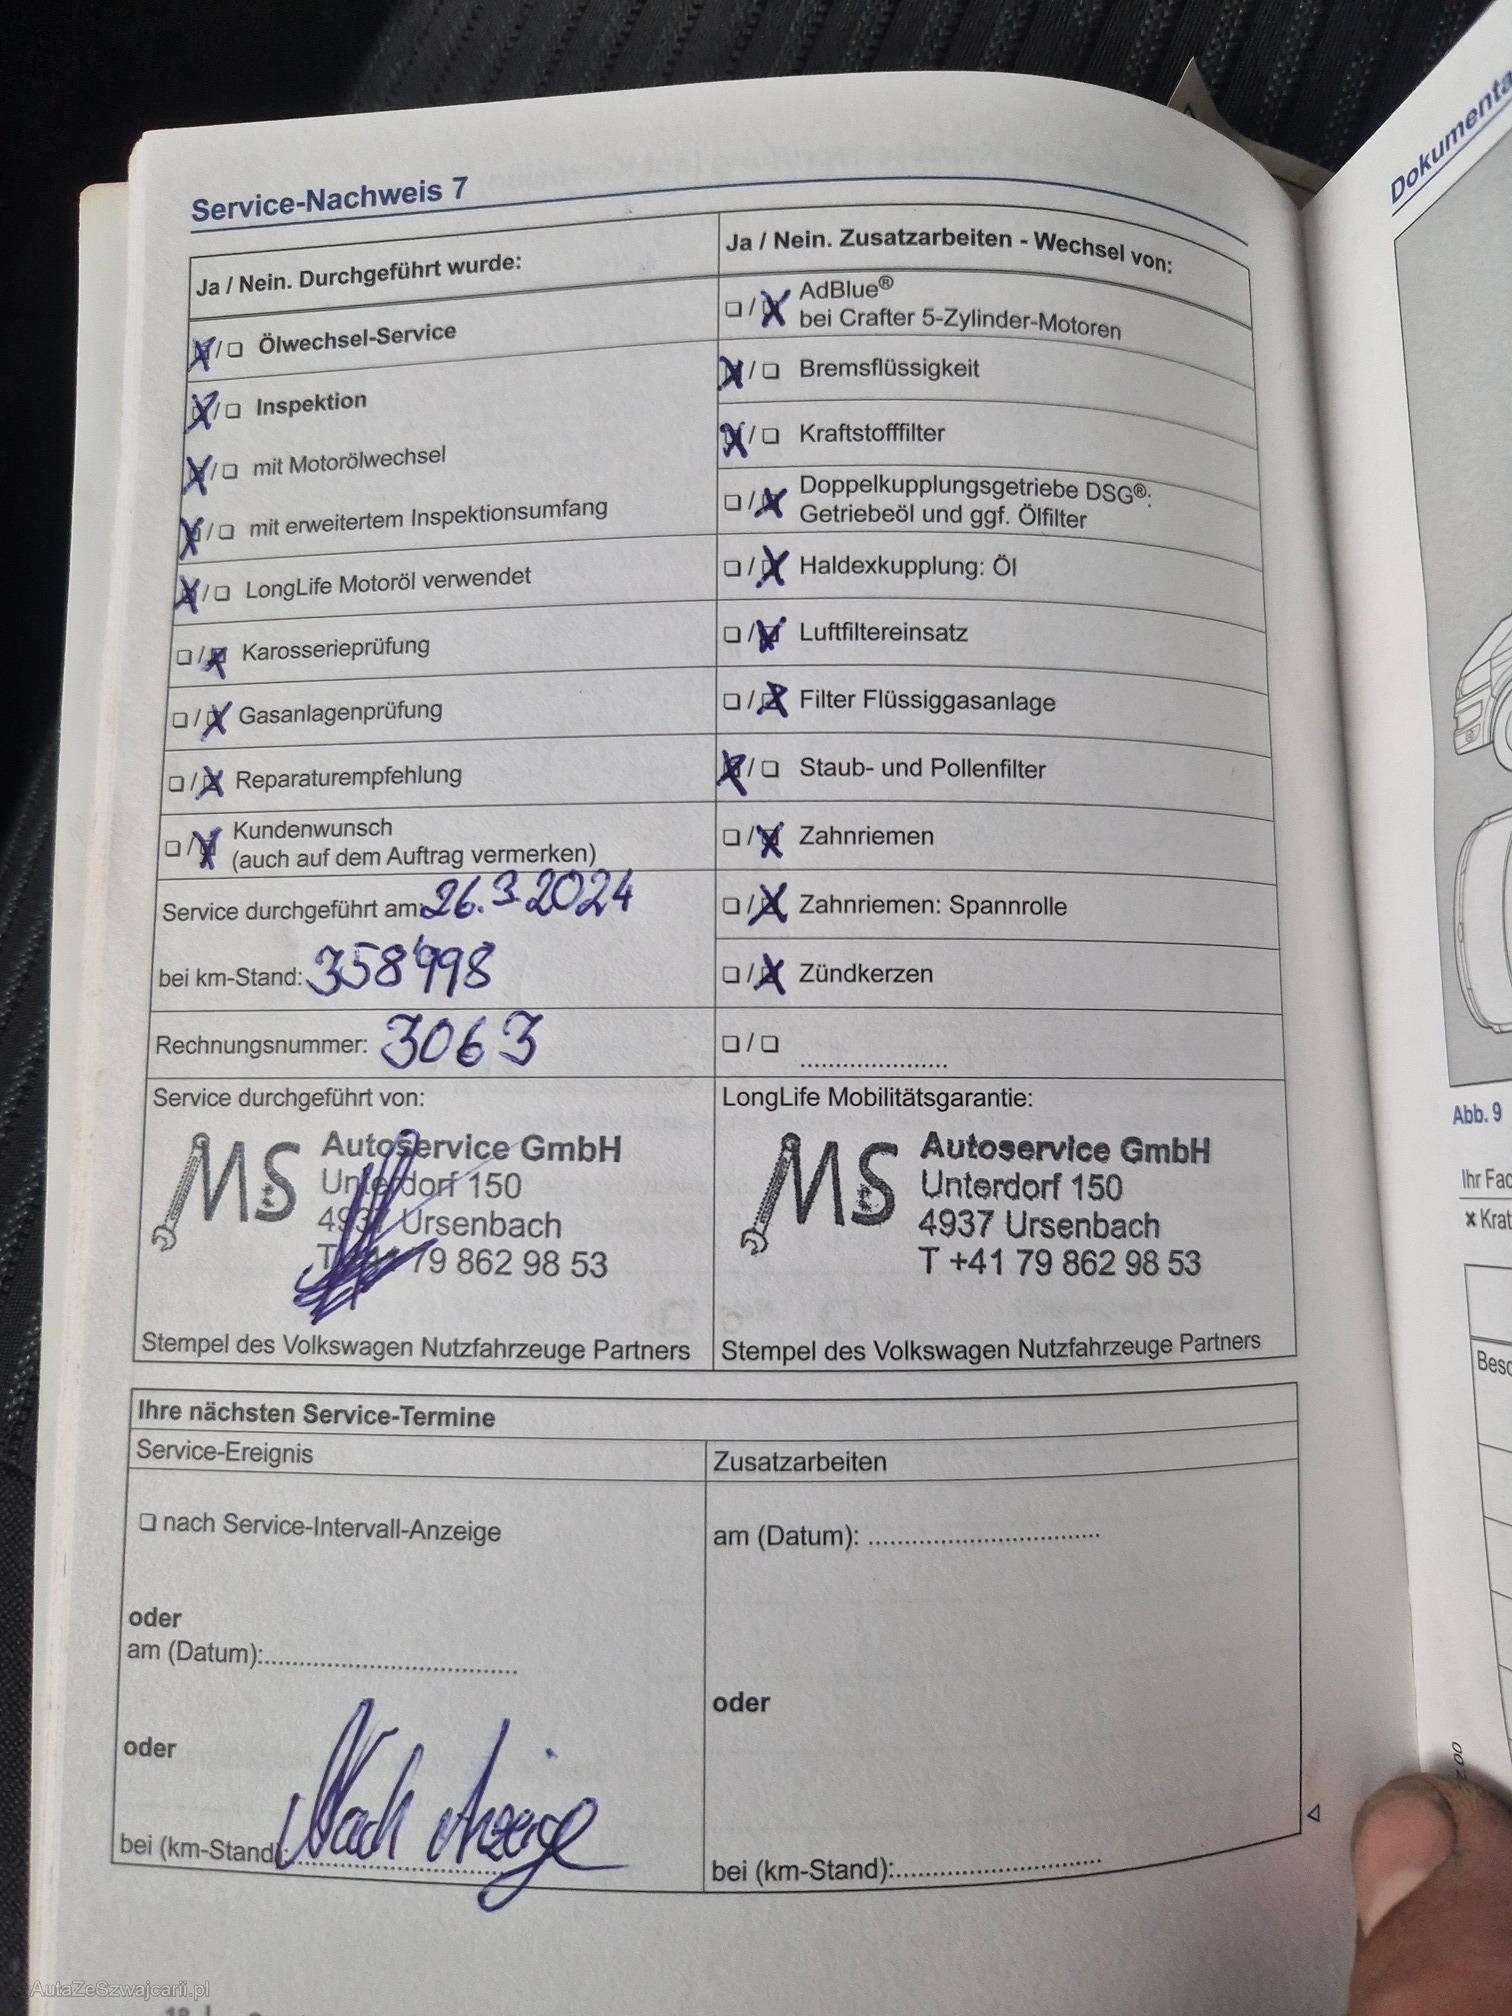 Service-Nachweis 7
Ja / Nein. Durchgeführt wurde:
☒/☐ Ölwechsel-Service
☒/☐ Inspektion
☒/☐ mit Motorölwechsel
☒/☐ mit erweitertem Inspektionsumfang
☒/☐ LongLife Motoröl verwendet
☐/☒ Karosserieprüfung
☐/☒ Gasanlagenprüfung
☐/☒ Reparaturempfehlung
☐/☒ Kundenwunsch
(auch auf dem Auftrag vermerken)
Service durchgeführt am: 26.3.2024
bei km-Stand: 358'998
Rechnungsnummer: 3063
Service durchgeführt von:
MS Autoservice GmbH
Unterdorf 150
4937 Ursenbach
T +41 79 862 98 53
Stempel des Volkswagen Nutzfahrzeuge Partners
Ja / Nein. Zusatzarbeiten - Wechsel von:
☐/☒ AdBlue®
bei Crafter 5-Zylinder-Motoren
☒/☐ Bremsflüssigkeit
☒/☐ Kraftstofffilter
☐/☒ Doppelkupplungsgetriebe DSG®:
Getriebeöl und ggf. Ölfilter
☐/☒ Haldexkupplung: Öl
☐/☒ Luftfiltereinsatz
☐/☒ Filter Flüssiggasanlage
☒/☐ Staub- und Pollenfilter
☐/☒ Zahnriemen
☐/☒ Zahnriemen: Spannrolle
☐/☒ Zündkerzen
☐/☐ .....................
LongLife Mobilitätsgarantie:
MS Autoservice GmbH
Unterdorf 150
4937 Ursenbach
T +41 79 862 98 53
Stempel des Volkswagen Nutzfahrzeuge Partners
Ihre nächsten Service-Termine
Service-Ereignis
☐ nach Service-Intervall-Anzeige
oder
am (Datum):
oder
bei (km-Stand): Nach Anzeige
Zusatzarbeiten
am (Datum):
oder
bei (km-Stand):
Dokumenta
Abb. 9
Ihr Fac
× Krat
Besc
AutaZeSzwajcarii.pl